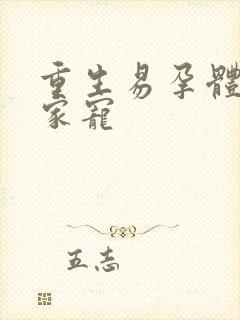 重生易孕體
家寵
五志